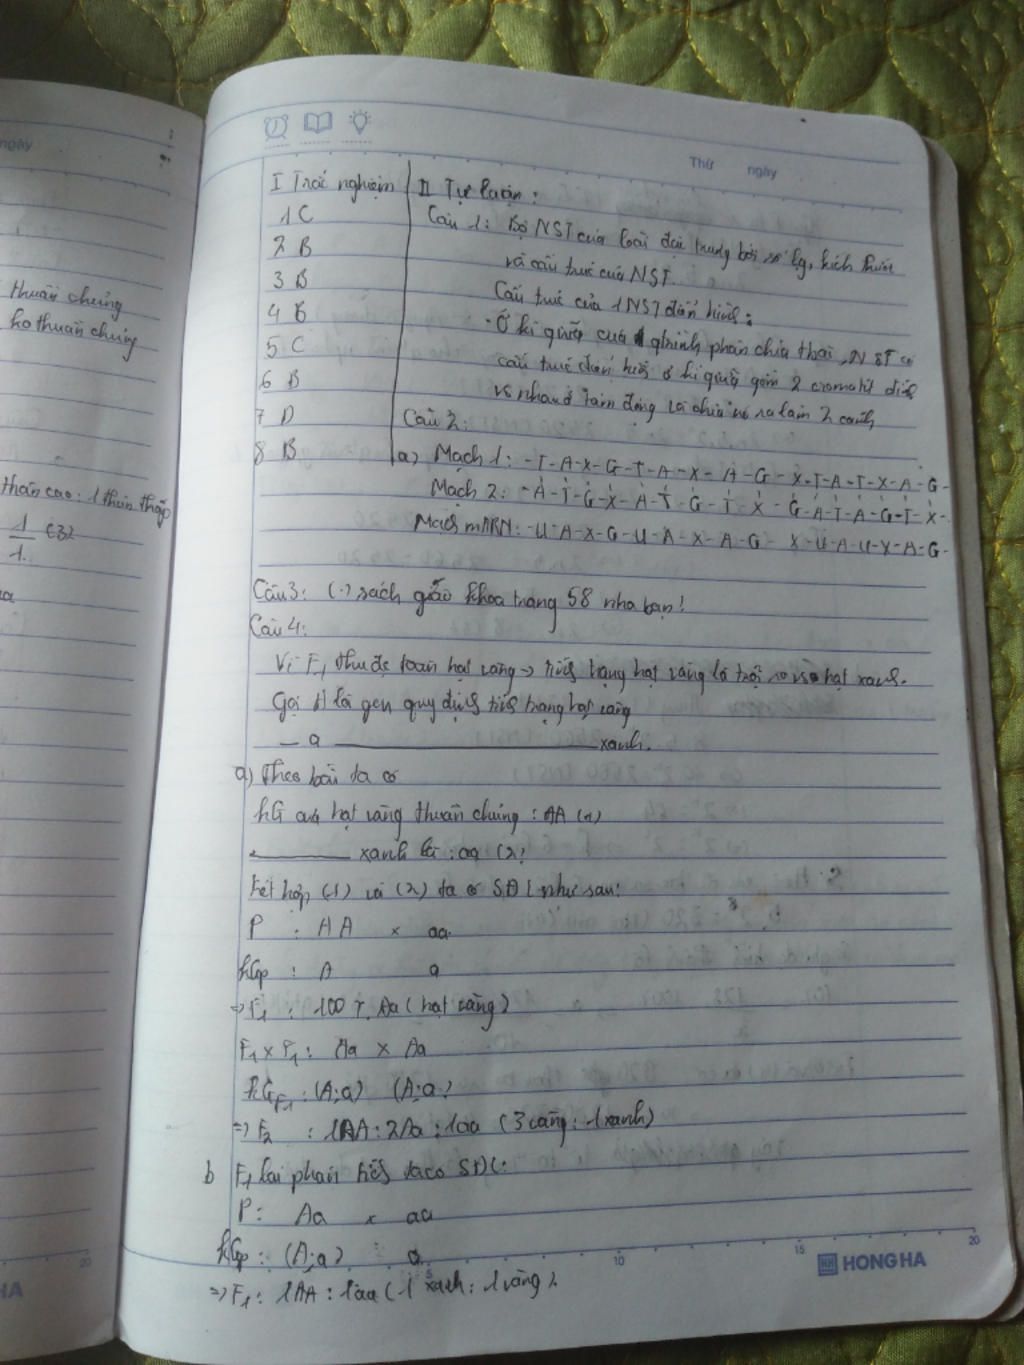 ngày
thuần chủng
ko thuần chủng
thân cao: 1 thân thấp
Thứ ngày
I Trắc nghiệm
1 C
2 B
3 B
4 B
5 C
6 B
7 D
8 B
II Tự luận:
Câu 1: Bộ NST của loài đặc trưng bởi số lg, kích thước
và cấu trúc của NST.
Cấu trúc của 1 NST điển hình:
- Ở kì giữa của quá trình phân chia tbài, NST có
cấu trúc điển hình ở kì giữa gồm 2 cromatit dính
vs nhau ở tâm động và chia nó ra làm 2 cánh
Câu 2:
a) Mạch 1: -T-A-X-G-T-A-X-A-G-X-T-A-T-X-A-G-
Mạch 2: -A-T-G-X-A-T-G-T-X-G-A-T-A-G-T-X-
Mạch mARN: -U-A-X-G-U-A-X-A-G-X-U-A-U-X-A-G-
Câu 3: (.) sách giáo khoa trang 58 nha bạn!
Câu 4:
Vì F1 thu đc toàn hạt vàng -> tính trạng hạt vàng là trội so vs hạt xanh.
Gọi A là gen quy định tính trạng hạt vàng
_ a ___ xanh.
a) Theo bài ta có
KG của hạt vàng thuần chủng: AA (1)
___ xanh là: aa (2)
Kết hợp (1) và (2) ta có SĐL như sau:
P : AA x aa
KGp : A a
=> F1 : 100% Aa (hạt vàng)
F1 x F1: Aa x Aa
KG F1: (A;a) (A;a)
=> F2 : 1AA:2Aa:1aa (3 vàng: 1 xanh)
b F1 lai phân tích ta có SĐL:
P: Aa x aa
KGp: (A;a) a
=> F1: 1AA: 1aa (1 xanh: 1 vàng)
10
15
20
HONG HA